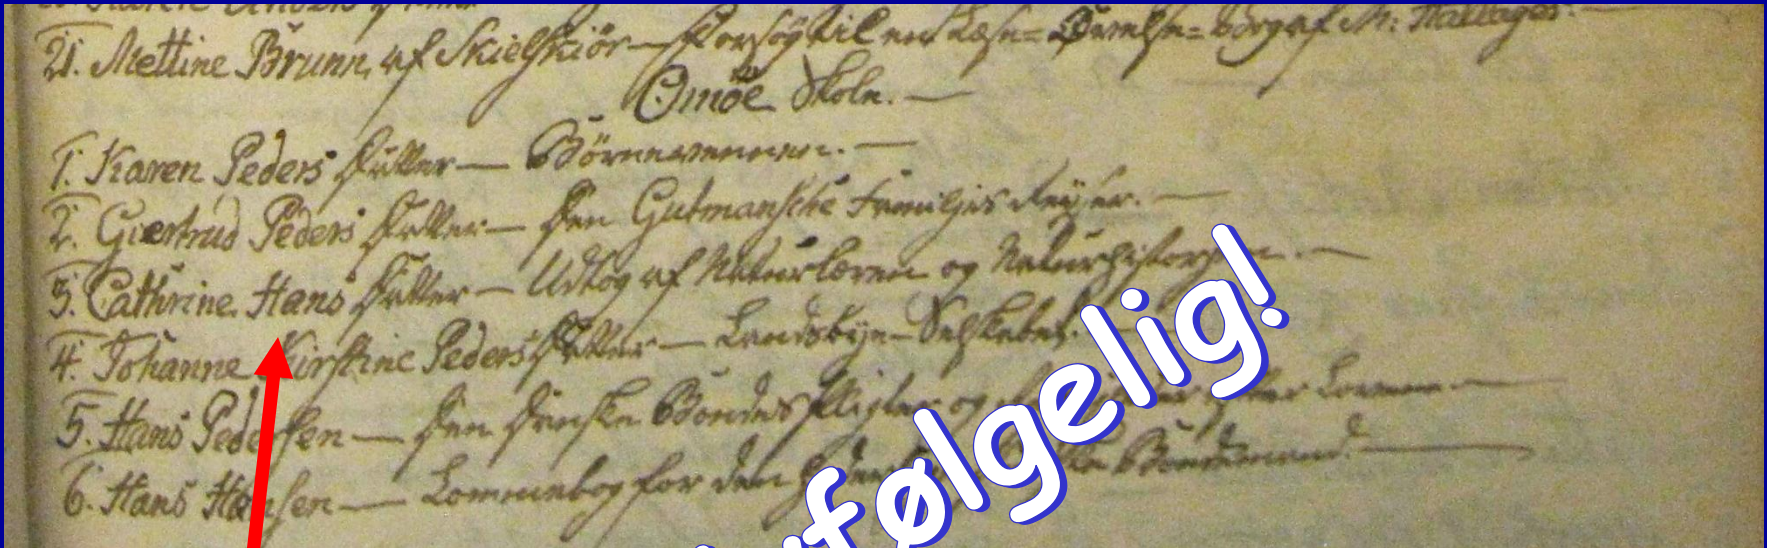 21. Mettine Brunn af Skielskiör — Forsög til en Læse= Øvelse= Bog af M: Hallager. —
Omöe Skole. —
1. Karen Peders Datter — Börnevennen. —
2. Giertrud Peders Datter — Den Gutmanske Familie —
3. Cathrine Hans Datter — Udtog af Naturlæren og Naturhistorien. —
4. Johanne Kirstine Peders Datter — Landsbye-Selskabet.
5. Hans Pedersen — Den Danske Bondes Pligter og
6. Hans Hansen — Lommebog for den Bondemand. —
følgelig!